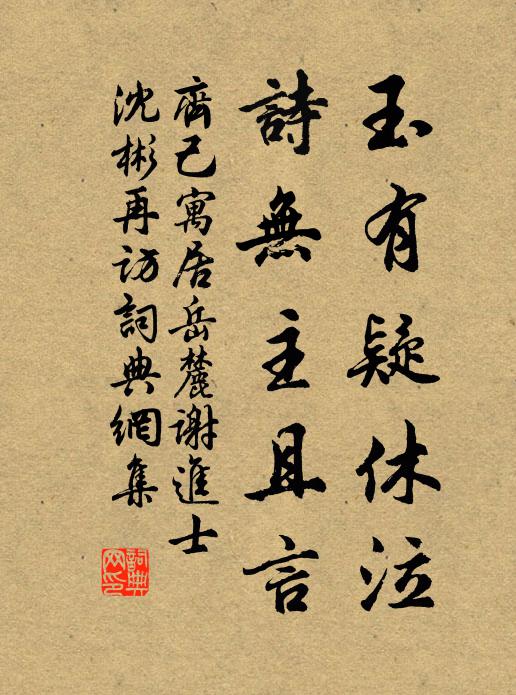 玉有疑休泣
詩無主且言
齊己寓居岳麓謝進士
沈彬再訪詞典網集
詞典網印